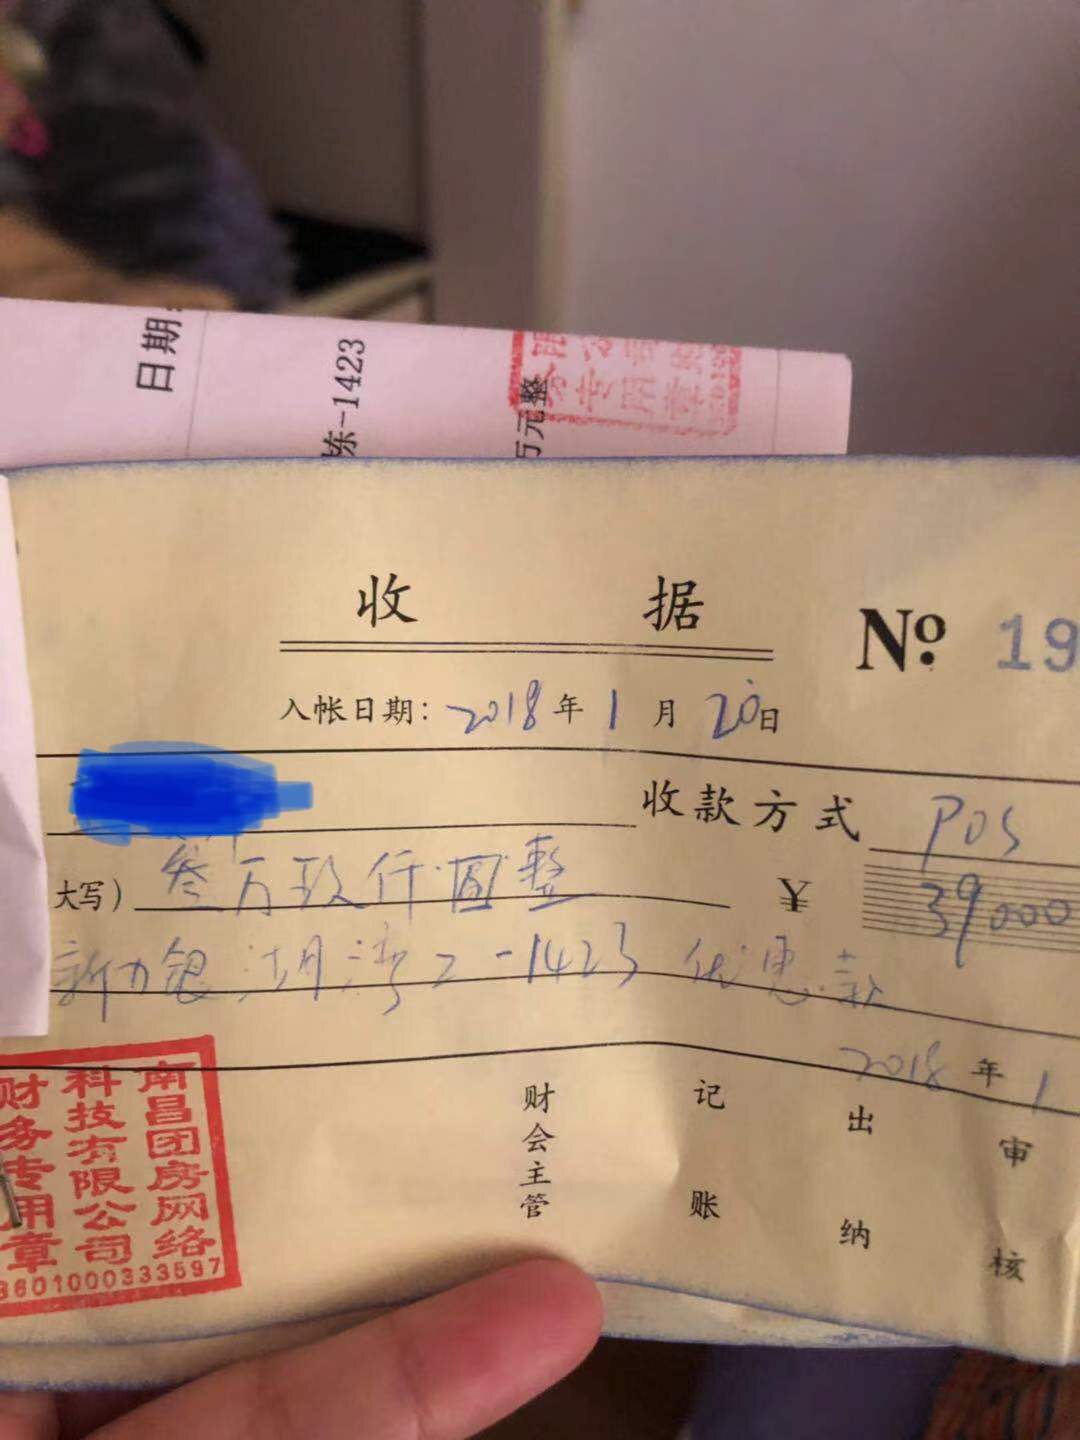 日期:
栋-1423
万元整
专用章
收 据
No. 19
入帐日期: 2018年1月20日
收款方式 POS
大写) 叁万玖仟圆整 ¥ 39000
新力银湖湾2-1423 优惠款
2018年1
财会主管 记账 出纳 审核
南昌团房网络
科技有限公司
财务专用章
3601000333597